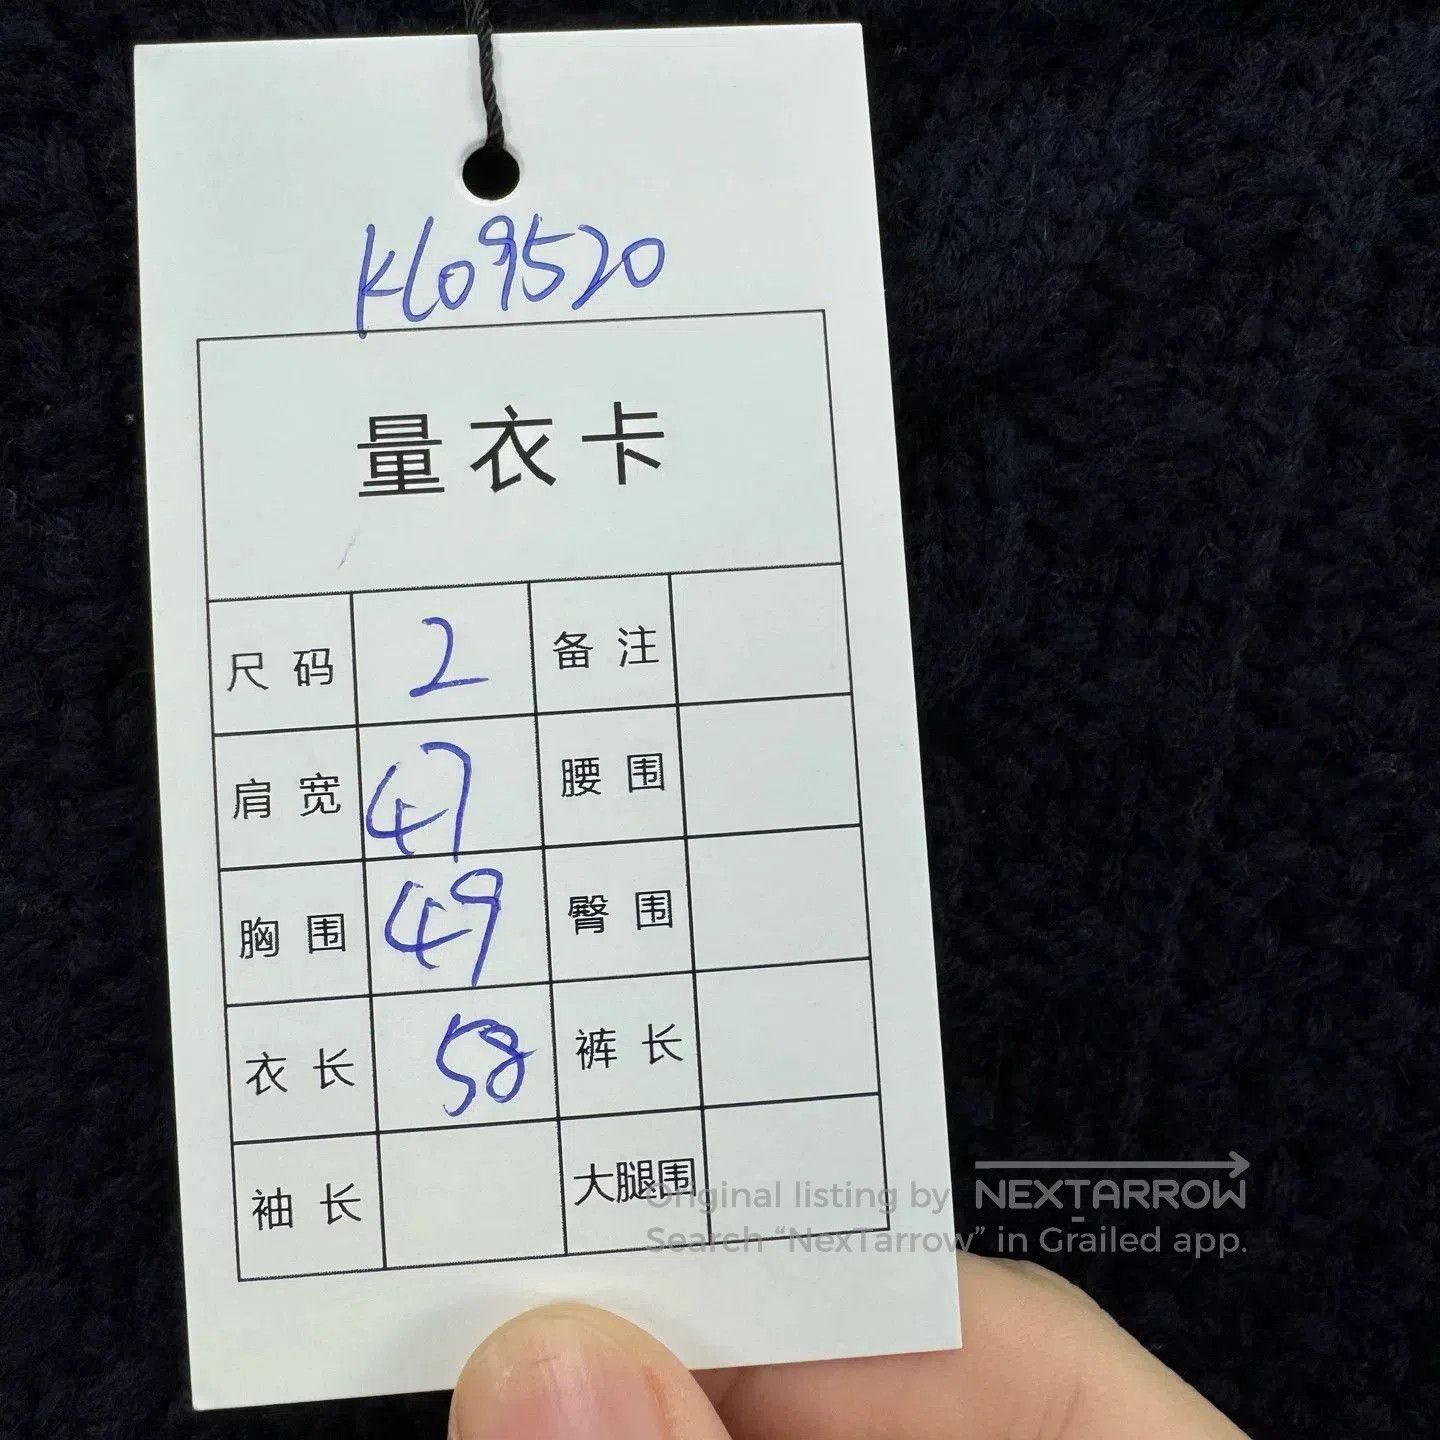 K609520
量衣卡
尺码 2 备注
肩宽 47 腰围
胸围 49 臀围
衣长 58 裤长
袖长 大腿围
Original listing by NEXTARROW
Search “NexTarrow” in Grailed app.